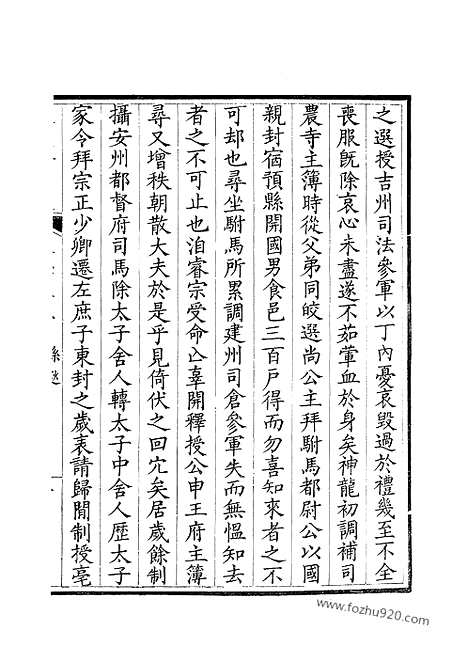 之選授吉州司法參軍以丁內憂哀毀過於禮幾至不全
喪服既除哀心未盡遂不茹葷血於身矣神龍初調補司
農寺主簿時從父弟同皎選尚公主拜駙馬都尉公以國
親封宿預縣開國男食邑三百戶得而勿喜知來者之不
可却也尋坐駙馬所累調建州司倉參軍失而無慍知去
者之不可止也洎睿宗受命亾辜開釋授公申王府主簿
尋又增秩朝散大夫於是乎見倚伏之回穴矣居歲餘制
攝安州都督府司馬除太子舍人轉太子中舍人歷太子
家令拜宗正少卿遷左庶子東封之歲表請歸閒制授亳
www.fozhu920.com